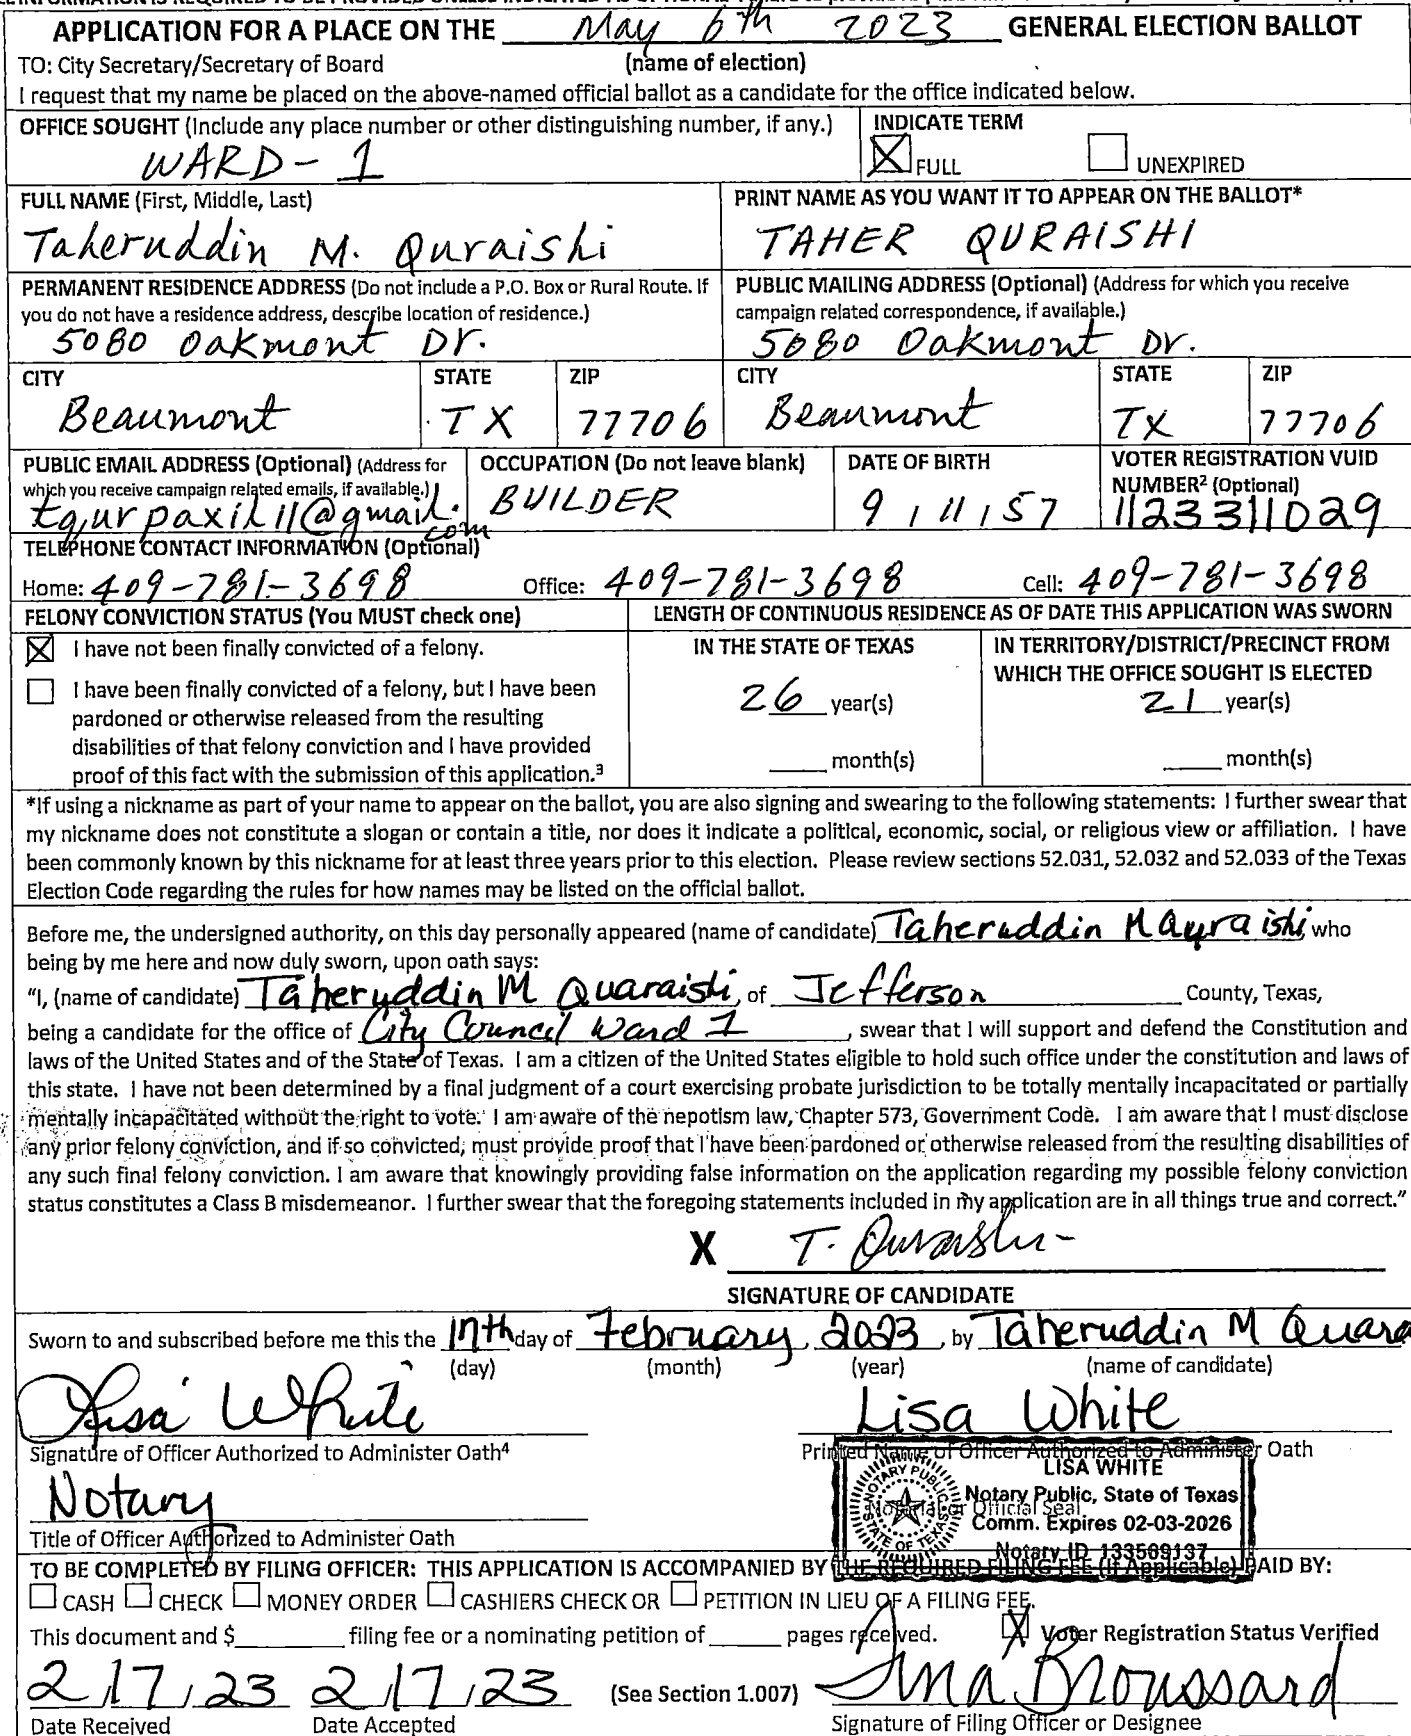 APPLICATION FOR A PLACE ON THE May 6th 2023 GENERAL ELECTION BALLOT
TO: City Secretary/Secretary of Board (name of election)
I request that my name be placed on the above-named official ballot as a candidate for the office indicated below.
OFFICE SOUGHT (Include any place number or other distinguishing number, if any.) INDICATE TERM
WARD - 1 FULL UNEXPIRED
FULL NAME (First, Middle, Last) PRINT NAME AS YOU WANT IT TO APPEAR ON THE BALLOT*
Taheruddin M. Quraishi TAHER QURAISHI
PERMANENT RESIDENCE ADDRESS (Do not include a P.O. Box or Rural Route. If PUBLIC MAILING ADDRESS (Optional) (Address for which you receive
you do not have a residence address, describe location of residence.) campaign related correspondence, if available.)
5080 Oakmont Dr. 5080 Oakmont Dr.
CITY STATE ZIP CITY STATE ZIP
Beaumont TX 77706 Beaumont TX 77706
PUBLIC EMAIL ADDRESS (Optional) (Address for OCCUPATION (Do not leave blank) DATE OF BIRTH VOTER REGISTRATION VUID
which you receive campaign related emails, if available.) NUMBER² (Optional)
@gmail.com BUILDER 9 / 11 / 57 1123311029
TELEPHONE CONTACT INFORMATION (Optional)
Home: 409-781-3698 Office: 409-781-3698 Cell: 409-781-3698
FELONY CONVICTION STATUS (You MUST check one) LENGTH OF CONTINUOUS RESIDENCE AS OF DATE THIS APPLICATION WAS SWORN
I have not been finally convicted of a felony. IN THE STATE OF TEXAS IN TERRITORY/DISTRICT/PRECINCT FROM
WHICH THE OFFICE SOUGHT IS ELECTED
I have been finally convicted of a felony, but I have been 26 year(s) 21 year(s)
pardoned or otherwise released from the resulting
disabilities of that felony conviction and I have provided month(s) month(s)
proof of this fact with the submission of this application.³
*If using a nickname as part of your name to appear on the ballot, you are also signing and swearing to the following statements: I further swear that
my nickname does not constitute a slogan or contain a title, nor does it indicate a political, economic, social, or religious view or affiliation. I have
been commonly known by this nickname for at least three years prior to this election. Please review sections 52.031, 52.032 and 52.033 of the Texas
Election Code regarding the rules for how names may be listed on the official ballot.
Before me, the undersigned authority, on this day personally appeared (name of candidate) Taheruddin M Quraishi who
being by me here and now duly sworn, upon oath says:
"I, (name of candidate) Taheruddin M Quaraishi, of Jefferson County, Texas,
being a candidate for the office of City Council Ward 1, swear that I will support and defend the Constitution and
laws of the United States and of the State of Texas. I am a citizen of the United States eligible to hold such office under the constitution and laws of
this state. I have not been determined by a final judgment of a court exercising probate jurisdiction to be totally mentally incapacitated or partially
mentally incapacitated without the right to vote. I am aware of the nepotism law, Chapter 573, Government Code. I am aware that I must disclose
any prior felony conviction, and if so convicted, must provide proof that I have been pardoned or otherwise released from the resulting disabilities of
any such final felony conviction. I am aware that knowingly providing false information on the application regarding my possible felony conviction
status constitutes a Class B misdemeanor. I further swear that the foregoing statements included in my application are in all things true and correct."
X T. Quraishi
SIGNATURE OF CANDIDATE
Sworn to and subscribed before me this the 17th day of February, 2023, by Taheruddin M Quara
(day) (month) (year) (name of candidate)
Lisa White Lisa White
Signature of Officer Authorized to Administer Oath⁴ Printed Name of Officer Authorized to Administer Oath
Notary
Title of Officer Authorized to Administer Oath
NOTARY PUBLIC STATE OF TEXAS
LISA WHITE
Notary Public, State of Texas
Notarial or Official Seal
Comm. Expires 02-03-2026
Notary ID 133569137
TO BE COMPLETED BY FILING OFFICER: THIS APPLICATION IS ACCOMPANIED BY THE REQUIRED FILING FEE (If Applicable) PAID BY:
CASH CHECK MONEY ORDER CASHIERS CHECK OR PETITION IN LIEU OF A FILING FEE.
This document and $ filing fee or a nominating petition of pages received. Voter Registration Status Verified
2/17/23 2/17/23 (See Section 1.007) Tina Broussard
Date Received Date Accepted Signature of Filing Officer or Designee